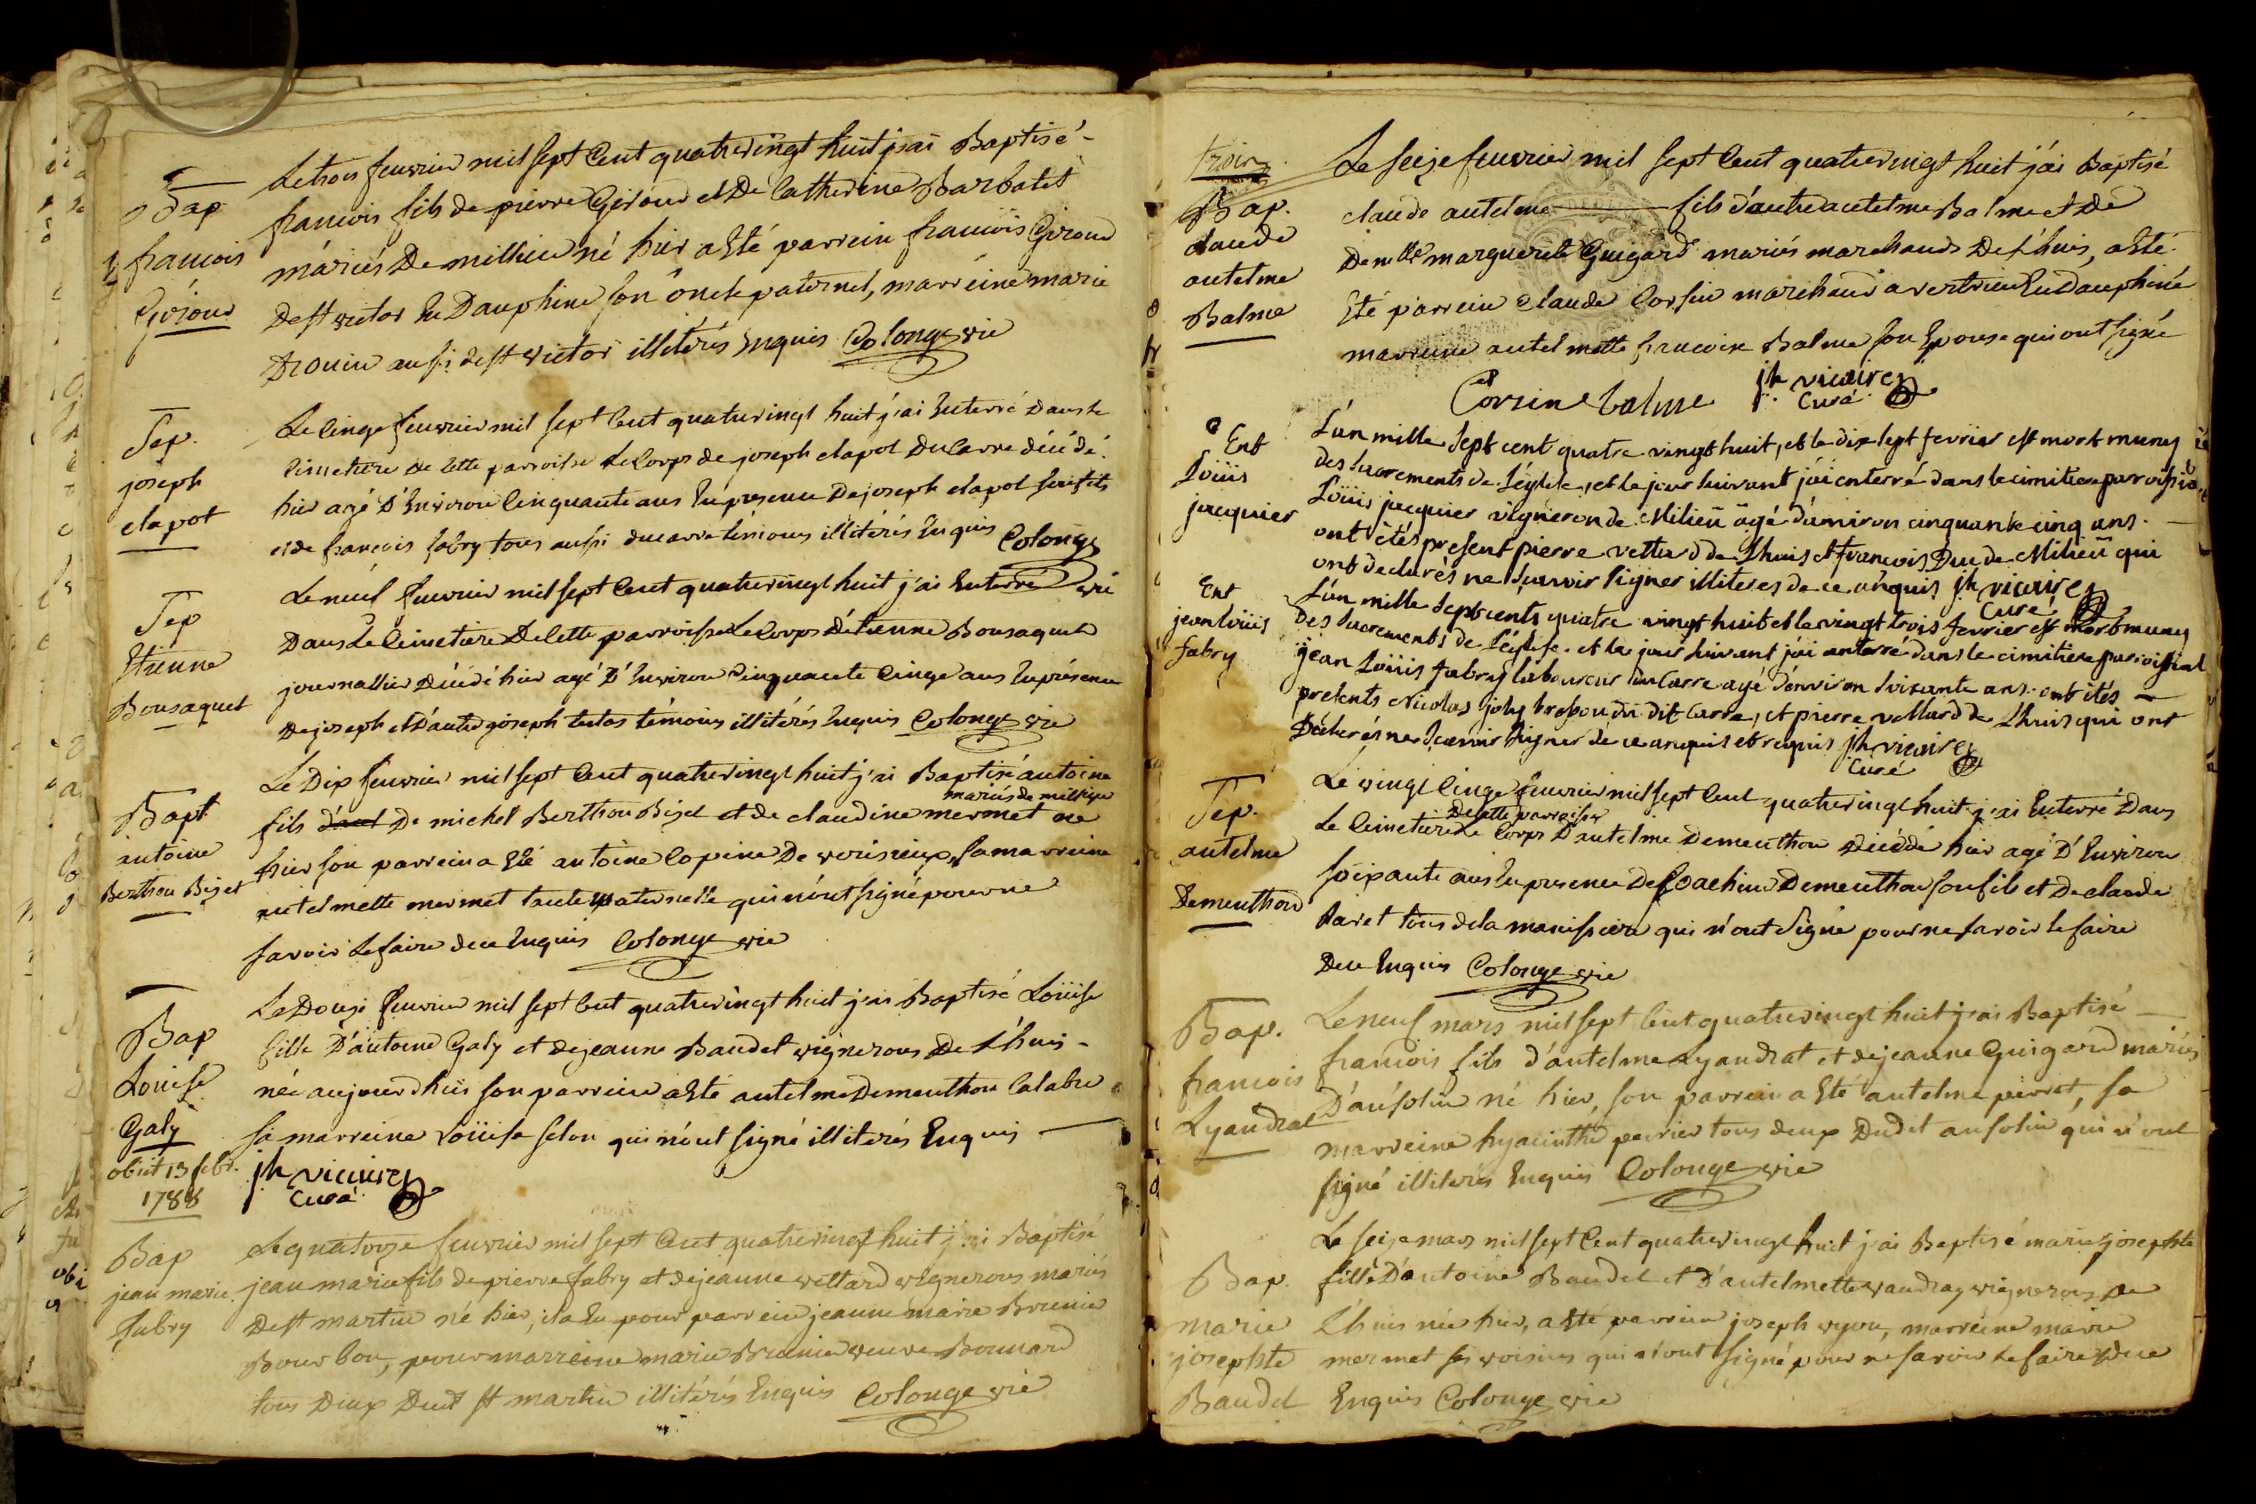 Bap
francois
Giroud
Le trois feuvrier mil sept Cent quatrevingt huit j'ai Baptisé
francois fils de pierre Giroud et De Catherine Barbatet
máriés De millieu né hier a Eté parrein francois Giroud
De st victor En Dauphiné son oncle paternel, marreine marie
Drouin aussi de st victor illitérés Enquis Colonge vic
Sep.
joseph
clapot
Le cinqe feuvrier mil sept Cent quatrevingt huit j'ai Enterré Dans le
Cimetiere de Cette parroisse Le Corps de joseph clapot Du Carre décédé
hier agé D'Environ Cinquante ans En presence De joseph clapot son fils
et de francois fabry tous aussi du carre témoins illitérés Enquis Colonge
vic
Sep
Etienne
Bousaquet
Le neuf feuvrier mil sept Cent quatrevingt huit j'ai Enterré
Dans Le Cimetiere De Cette parroisse Le Corps d'étienne Bousaquet
journallier Décédé hier agé D'Environ Cinquante Cinqe ans En présence
De joseph et D'autre joseph tutos témoins illitérés Enquis Colonge vic
Bapt
antoine
Berthon Bizet
Le Dix feuvrier mil sept Cent quatrevingt huit j'ai Baptisé antoine
mariés de millieu
fils d'aut De michel Berthon Bizet et de claudine mermet né
hier son parrein a Eté antoine Copine De verisieux, Sa marreine
antelmette mermet tante paternelle qui n'ont signé pour ne
savoir Le faire de ce Enquis Colonge vic
Bap
Louise
Galy
obiit 13 febr.
1788
Le Douze feuvrier mil sept Cent quatrevingt huit j'ai Baptisé Loüise
fille D'antoine Galy et de jeanne Baudet vignerons De L'huis
née aujourd'hui son parrein a Eté antelme Dementhon Calabre
sa marreine Loüise selon qui n'ont signé illiterés Enquis
jh vicaire
Curé
Bap
jean marie
fabry
Le quatorze feuvrier mil sept Cent quatrevingt huit j'ai Baptisé
jean marie fils de pierre fabry et de jeanne vettard vignerons mariés
De st martin né hier, il a Eu pour parrein jeanne marie Brunier
Bourbon, pour marreine marie Brunier veuve Bonnard
tous Deux Dudt st martin illitérés Enquis Colonge vic
Bap.
claude
antelme
Balme
Le seize feuvrier mil sept Cent quatrevingt huit j'ai Baptisé
claude antelme fils d'autre antelme Balme et De
Demlle marguerite Guigard mariés marchands De L'huis, a Eté
Eté parrein claude Corsin marchand a vertrieu En Dauphiné
marreine antelmette francoise Balme son Epouse qui ont signé
Corsin Balme jh vicaire
Curé
Ent
Loüis
jacquier
L'an mille sept cent quatre vingt huit, et le dix sept fevrier est mort muny
des sacrements de L'église, et le jour suivant j'ai enterré dans le cimitiere parroissial
Loüis jacquier vigneron de Milieu agé d'anviron cinquante cinq ans.
ont étés present pierre vettard de L'huis et francois Duc de Milieu qui
ont declarés ne scavoir signer illiteres de ce anquis jh vicaire
Curé
Ent
jean loüis
fabry
L'an mille sept cents quatre vingt huit et le vingt trois fevrier est mort muny
Des sacrements de L'église. et le jour suivant j'ai anterré dans le cimitiere parroissial
jean Loüis fabry laboureur du Carre agé d'environ soixante ans. ont étés
presents Nicolas joly du dit Carre, et pierre vettard de L'huis qui ont
Déclarés ne scavoir signer de ce anquis et requis jh vicaire
Curé
Sep.
antelme
Dementhon
Le vingt Cinqe feuvrier mil sept Cent quatrevingt huit j'ai Enterré Dans
De Cette parroisse
Le Cimetiere Le Corps D'antelme Dementhon Décédé hier agé D'Environ
soixante ans En presence De Joachim Dementhon son fils et De claude
Paret tous de la manissiera qui n'ont Signé pour ne savoir le faire
De ce Enquis Colonge vic
Bap.
francois
Lyandrat
Le neuf mars mil sept Cent quatrevingt huit j'ai Baptisé
francois fils d'antelme Lyandrat et de jeanne Guigard mariés
D'ansolin né hier, son parrein a Eté antelme pierret, sa
marreine hyacinthe perrier tous deux Dudt ansolin qui n'ont
signé illiterés Enquis Colonge vic
Bap.
marie
josephte
Baudet
Le seize mars mil sept Cent quatrevingt huit j'ai Baptisé marie josephte
fille D'antoine Baudet et D'antelmette vaudray vignerons De
L'huis née hier, a Eté parrein joseph vyon, marreine marie
mermet ses voisins qui n'ont signé pour ne savoir Le faire De ce
Enquis Colonge vic